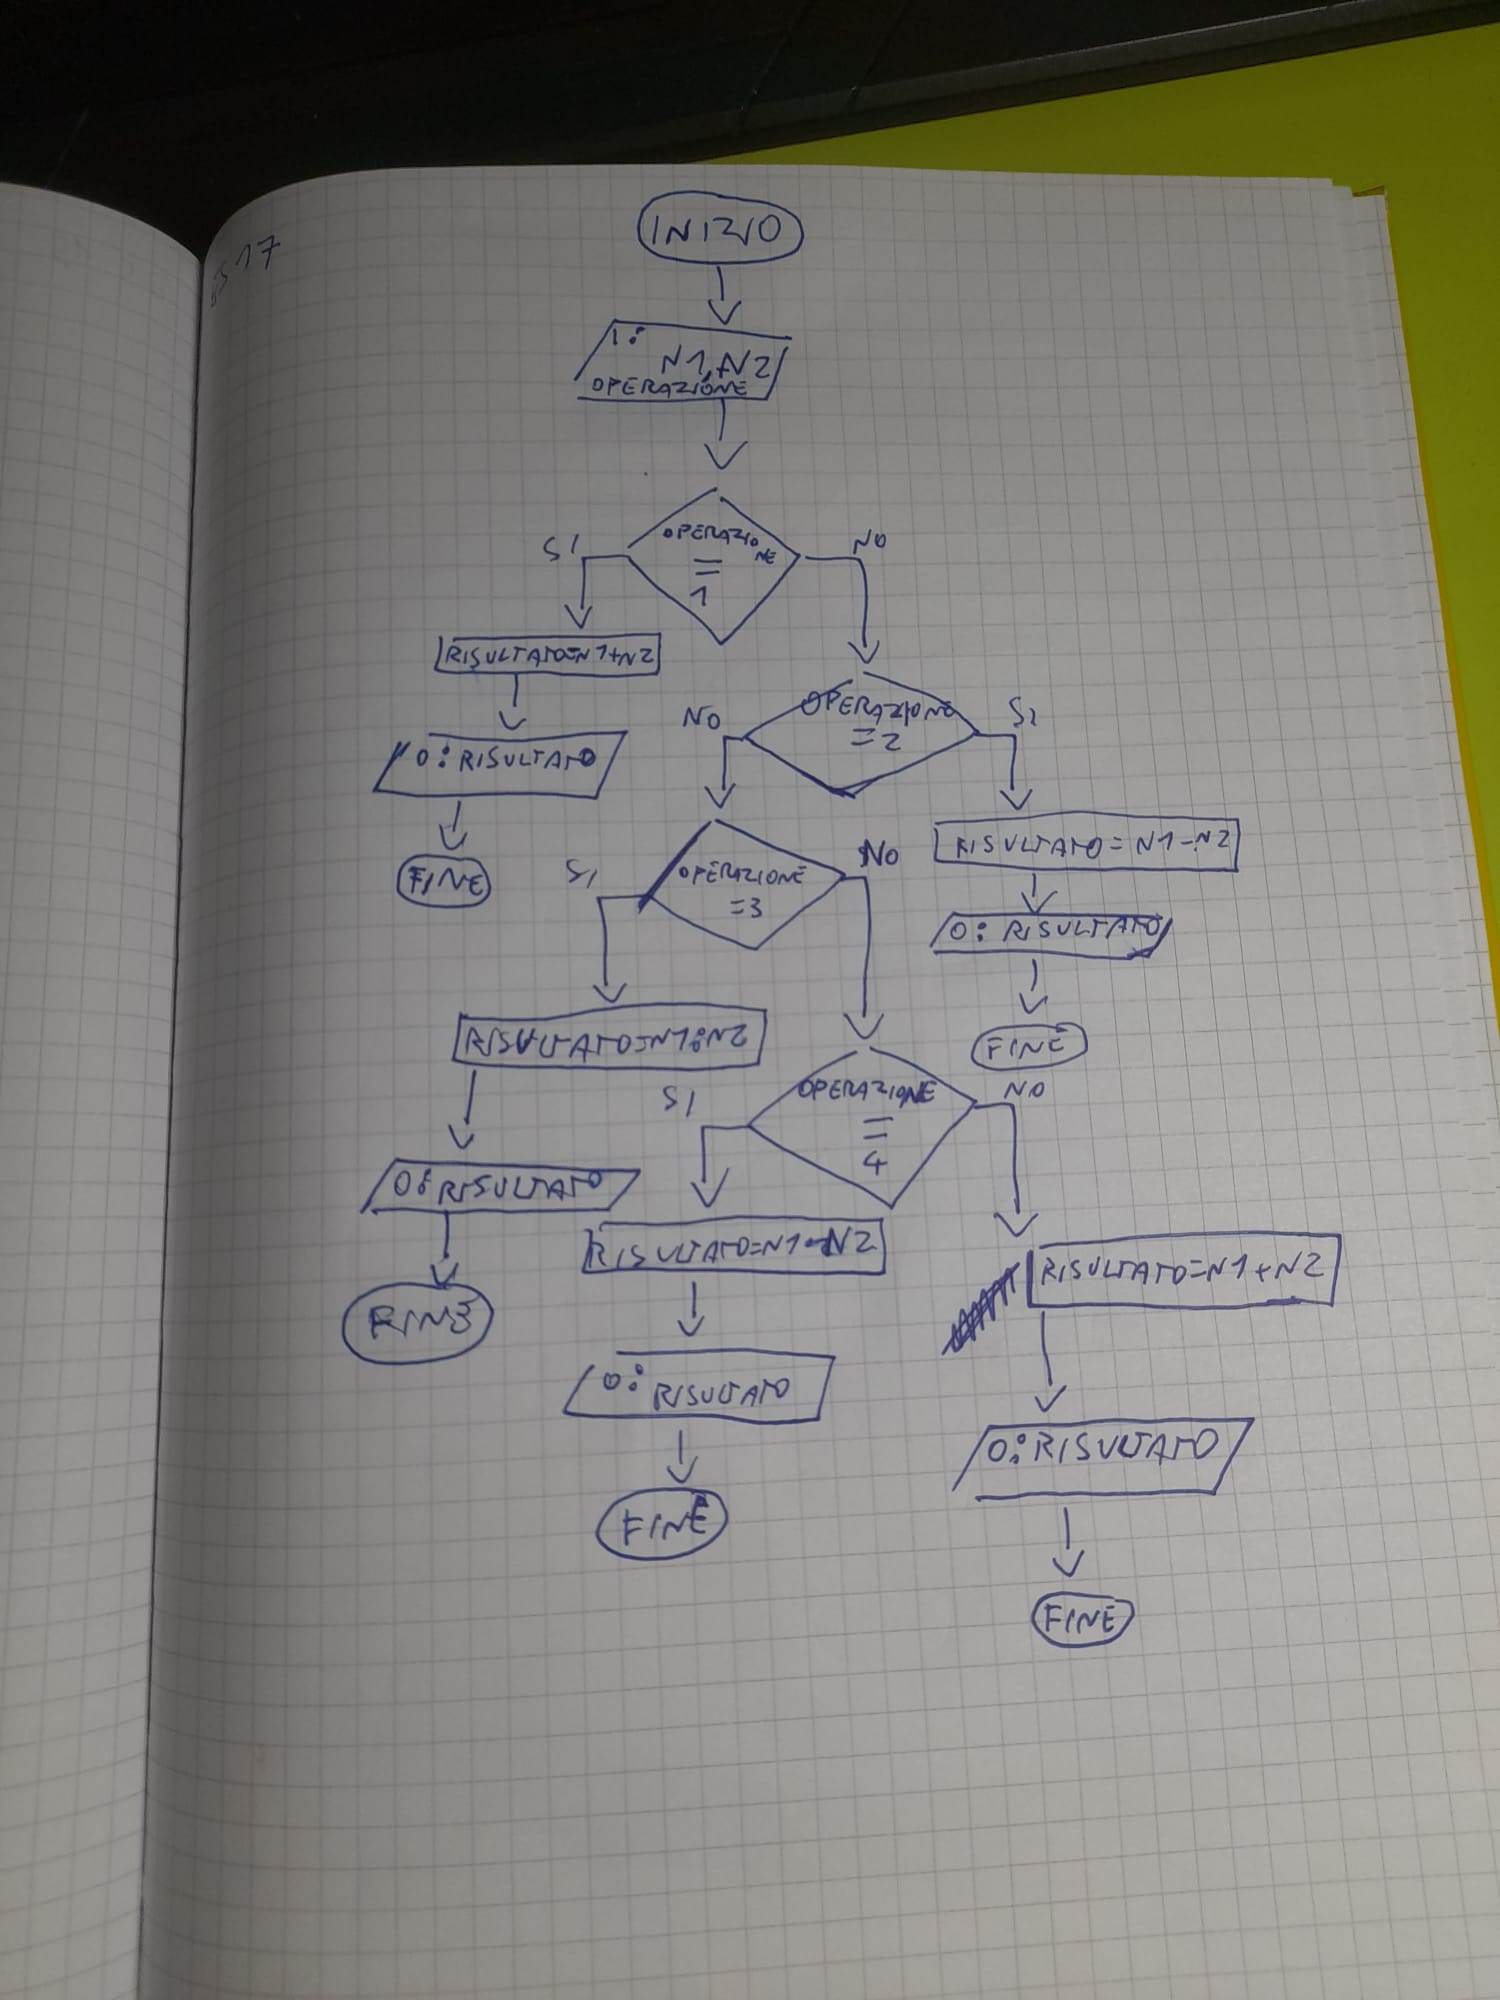 ES 17
INIZIO
I:
N1, N2
OPERAZIONE
OPERAZIO
NE
=
1
SI
NO
RISULTATO=N1+N2
O: RISULTATO
FINE
OPERAZIONE
=2
NO
SI
RISULTATO=N1-N2
O: RISULTATO
FINE
OPERAZIONE
=3
SI
NO
RISULTATO=N1:N2
O: RISULTATO
FINE
OPERAZIONE
=
4
SI
NO
RISULTATO=N1 N2
O: RISULTATO
FINE
RISULTATO=N1+N2
O: RISULTATO
FINE